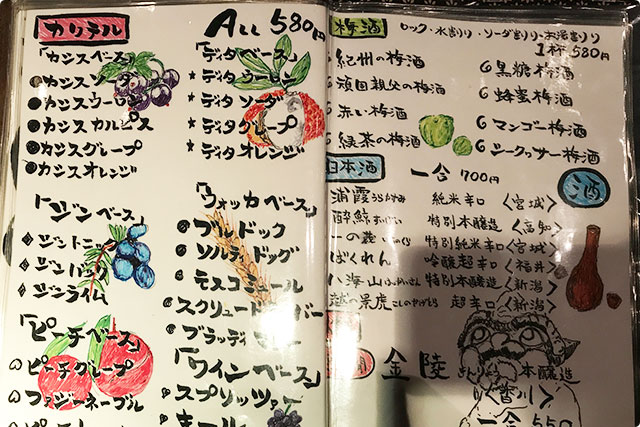 カクテル
ALL 580円
「カシスベース」
カシスソーダ
カシスウーロン
カシスカルピス
カシスグレープ
カシスオレンジ
「ディタベース」
★ディタウーロン
★ディタソーダ
★ディタグレープ
★ディタオレンジ
「ジンベース」
ジントニック
ジンバック
ジンライム
「ウォッカベース」
ブルドッグ
ソルティドッグ
モスコミュール
スクリュードライバー
ブラッディ
「ピーチベース」
ピーチグレープ
ファジーネーブル
ピーチ
「ワインベース」
スプリッツァー
キール
梅酒
ロック・水割り・ソーダ割り・お湯割り
1杯580円
紀州の梅酒
頑固親父の梅酒
赤い梅酒
緑茶の梅酒
黒糖梅酒
蜂蜜梅酒
マンゴー梅酒
シークヮサー梅酒
日本酒
一合 700円
酒
浦霞 うらかすみ 純米辛口 〈宮城〉
酔鯨 すいげい 特別本醸造 〈高知〉
一の蔵 いちのくら 特別純米辛口 〈宮城〉
ばくれん 吟醸超辛口 〈福井〉
八海山 はっかいさん 特別本醸造 〈新潟〉
越の景虎 こしのかげとら 超辛口 〈新潟〉
金陵 きんりょう 本醸造
〈香川〉
一合 550